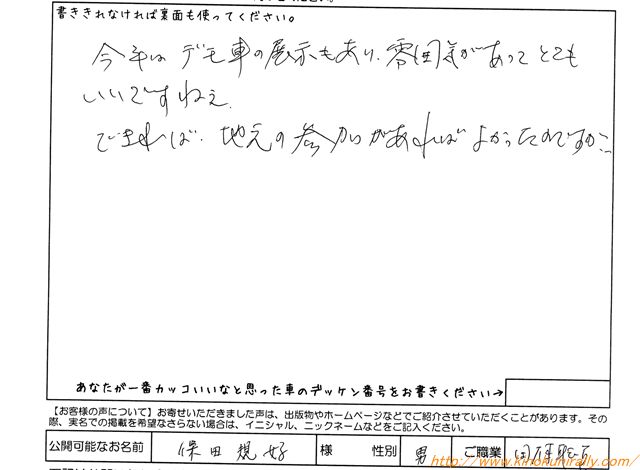 書ききれなければ裏面も使ってください。
今年は デモ車の展示もあり、雰囲気があって とても
いいですねぇ
できれば、地元の参加があれば よかったのですが…
あなたが一番カッコいいなと思った車のデッケン番号をお書きください→
【お客様の声について】お寄せいただきました声は、出版物やホームページなどでご紹介させていただくことがあります。その
際、実名での掲載を希望なさらない場合は、イニシャル、ニックネームなどをご記入ください。
公開可能なお名前 保田規好 様 性別 男 ご職業
http://www.kinokunirally.com